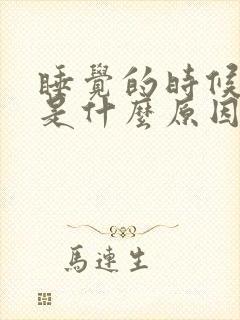 睡覺的時候
是什麼原因
馬連生